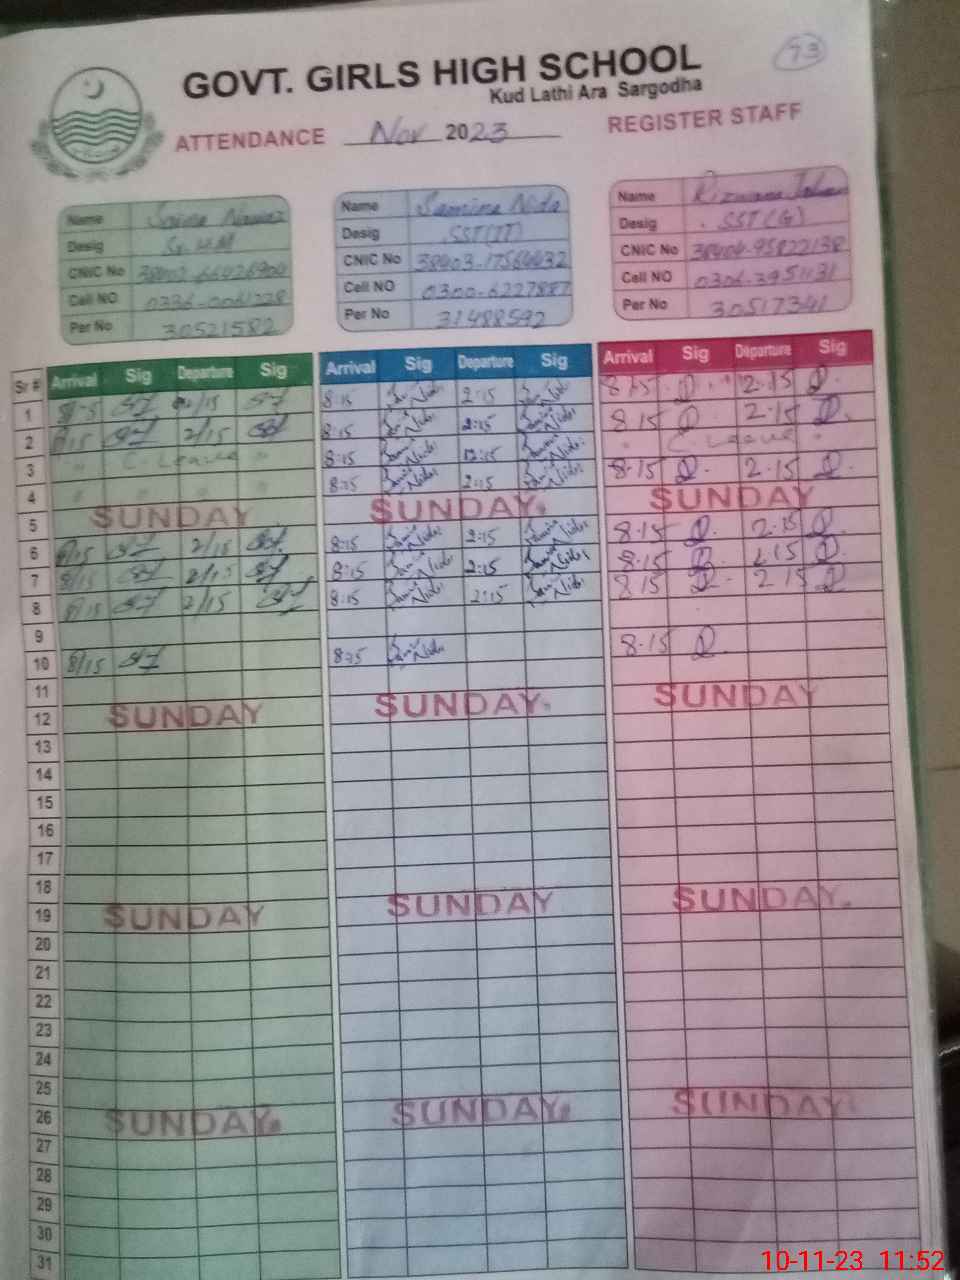 73
GOVT. GIRLS HIGH SCHOOL
Kud Lathi Ara Sargodha
ATTENDANCE Nov 2023 REGISTER STAFF
Name Saima Nawaz
Desig Sr. H.M
CNIC No
Cell NO
Per No 30521582
Name Samina Nida
Desig SST(IT)
CNIC No 38403-17564432
Cell NO 0300-6227887
Per No 31488592
Name Rizwana
Desig SST(G)
CNIC No 38404-95822138
Cell NO 0306-3951131
Per No 30517341
Sr # Arrival Sig Departure Sig Arrival Sig Departure Sig Arrival Sig Departure Sig
1 8/15 2/15 8:15 2:15 8.15 2.15
2 8/15 2/15 8:15 2:15 8.15 2.15
3 " C. Leave " 8:15 2:15 " C. Leave "
4 " " " " 8:15 2:15 8.15 2.15
5 SUNDAY SUNDAY SUNDAY
6 8/15 2/15 8:15 2:15 8.15 2.15
7 8/15 2/15 8:15 2:15 8.15 2.15
8 8/15 2/15 8:15 2:15 8.15 2.15
9
10 8/15 8:15 8.15
11
12 SUNDAY SUNDAY SUNDAY
13
14
15
16
17
18
19 SUNDAY SUNDAY SUNDAY
20
21
22
23
24
25
26 SUNDAY SUNDAY SUNDAY
27
28
29
30
31
10-11-23 11:52